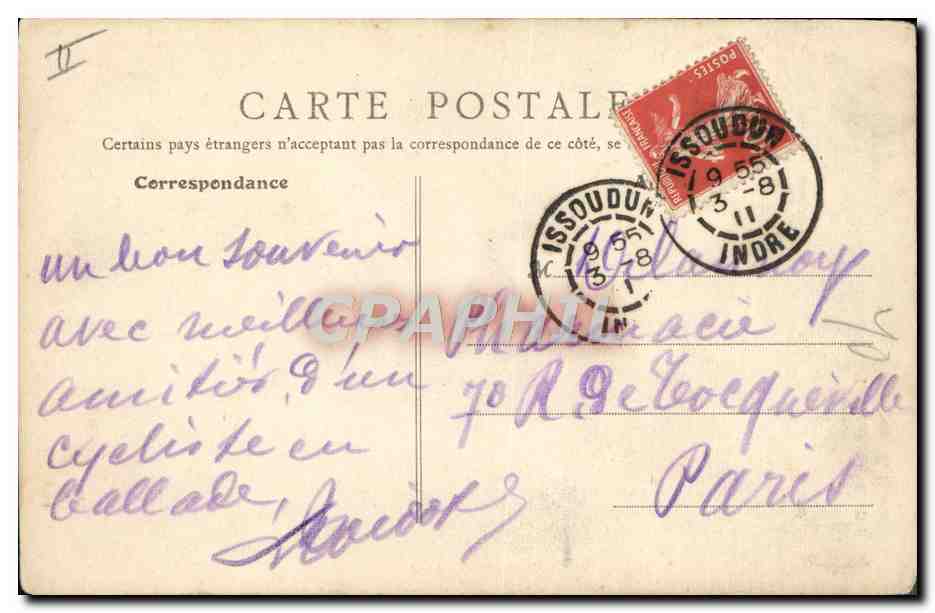 II
CARTE POSTALE
Certains pays étrangers n'acceptent pas la correspondance de ce côté, se
Correspondance
POSTES
REPUBLIQUE FRANÇAISE
ISSOUDUN
9 55
3 -8
11
INDRE
ISSOUDUN
9 55
3 -8
1
IN
un bon souvenir
avec meilleures
amitiés, d'un
cycliste en
ballade,
Pharmacie
70 R. De Tocqueville
Paris
CPAPHIL